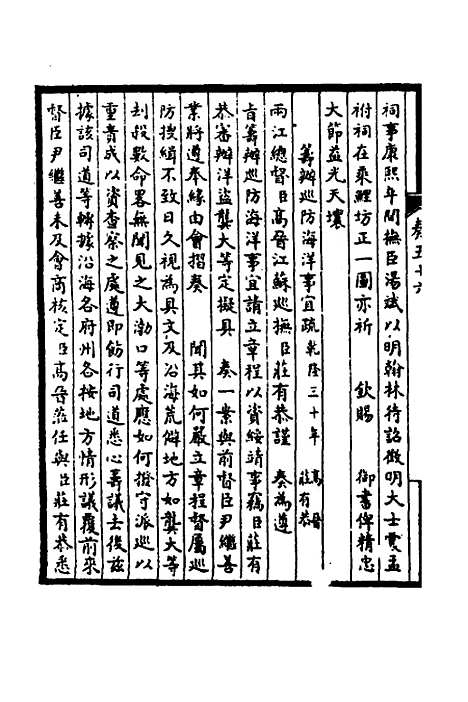 祠事康熙年間撫臣湯斌以明翰林待詔徵明大士震孟
祔祠在乘鯉坊正一圖亦祈　欽賜　御書俾精忠
大節益光天壤
籌辦巡防海洋事宜疏乾隆三十年　高晉　莊有恭
兩江總督臣高晉江蘇巡撫臣莊有恭謹　奏為遵
旨籌辦巡防海洋事宜請立章程以資綏靖事竊臣莊有
恭審辦洋盜龔大等定擬具　奏一案與前督臣尹繼善
業將遵奉緣由會摺奏　聞其如何嚴立章程督屬巡
防搜緝不致日久視為具文及沿海荒僻地方如龔大等
刦殺數命畧無聞見之大渤口等處應如何撥守派巡以
重責成以資查察之處遵即飭行司道悉心籌議去後茲
據該司道等轉據沿海各府州各按地方情形議覆前來
督臣尹繼善未及會商核定臣高晉蒞任與臣莊有恭悉
奏五十六